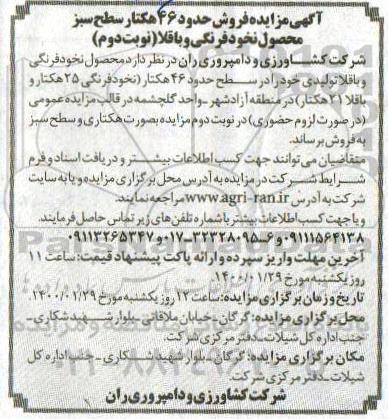 آگهی مزایده فروش حدود ۴۶ هکتار سطح سبز
محصول نخود فرنگی و باقلا (نوبت دوم)
شرکت کشاورزی و دامپروری ران در نظر دارد محصول نخود فرنگی
و باقلا تولیدی خود را در سطح حدود ۴۶ هکتار (نخود فرنگی ۲۵ هکتار و
باقلا ۲۱ هکتار) در منطقه آزادشهر -واحد گلچشمه در قالب مزایده عمومی
(در صورت لزوم حضوری) در نوبت دوم مزایده بصورت هکتاری و سطح سبز
به فروش برساند.
متقاضیان می توانند جهت کسب اطلاعات بیشتر و دریافت اسناد و فرم
شرایط شرکت در مزایده به آدرس محل برگزاری مزایده و یا به سایت
شرکت به آدرس www.agri-ran.ir مراجعه نمایند.
و یا جهت کسب اطلاعات بیشتر با شماره تلفن های زیر تماس حاصل فرمایند.
۰۹۱۱۱۵۶۴۱۳۸ و ۶-۳۲۳۲۸۰۹۵-۰۱۷ و ۰۹۱۱۳۲۶۵۳۴۷
آخرین مهلت واریز سپرده و ارائه پاکت پیشنهاد قیمت: ساعت ۱۱
روز یکشنبه مورخ ۱۴۰۰/۰۱/۲۹.
تاریخ و زمان برگزاری مزایده: ساعت ۱۲ روز یکشنبه مورخ ۱۴۰۰/۰۱/۲۹.
محل برگزاری مزایده: گرگان -خیابان ملاقاتی -بلوار شهید شکاری -
جنب اداره کل شیلات -دفتر مرکزی شرکت.
مکان برگزاری مزایده: گرگان -بلوار شهید شکاری - جنب اداره کل
شیلات -دفتر مرکزی شرکت.
شرکت کشاورزی و دامپروری ران